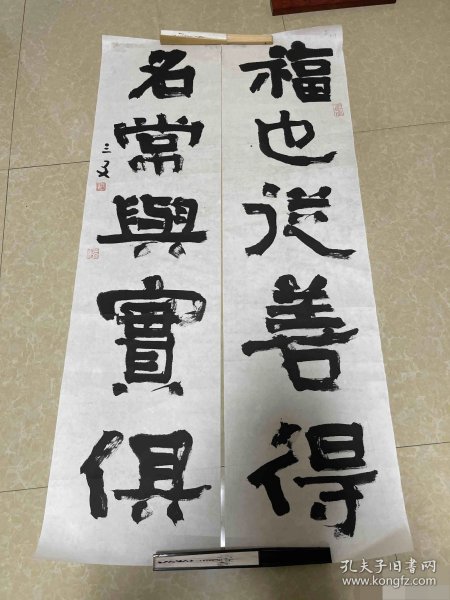 福也從善得
名常與實俱
孔夫子旧书网
www.kongfz.com